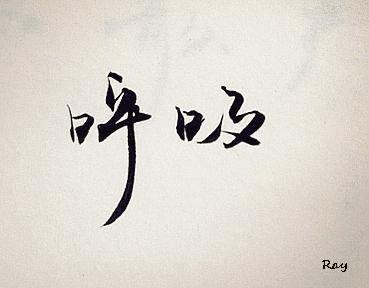 呼吸
Ray